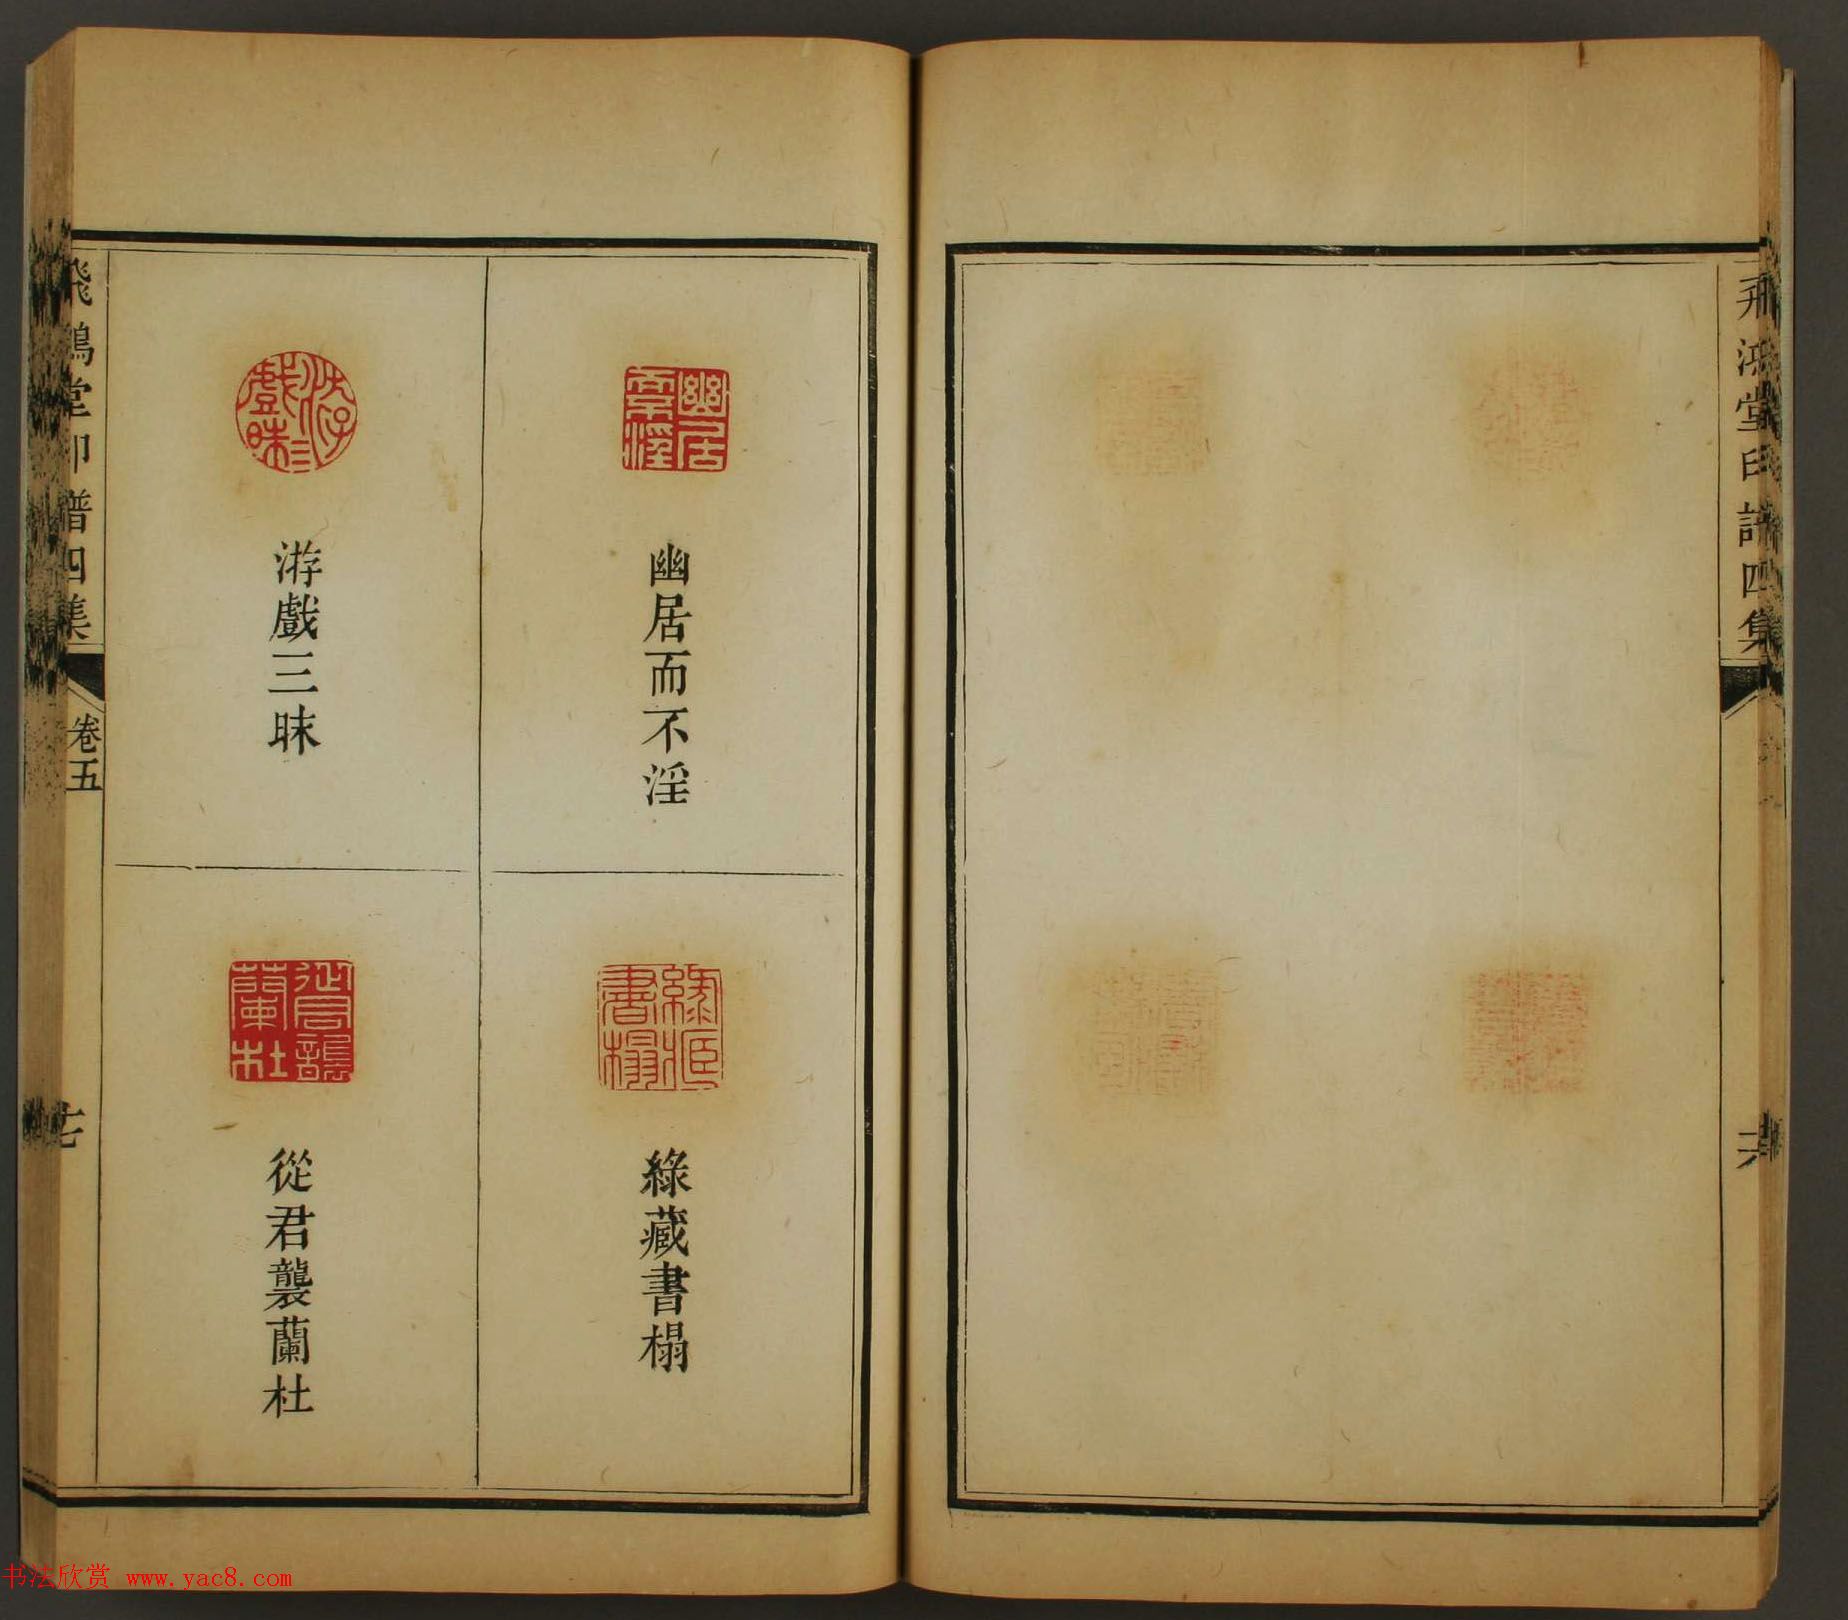 飛鴻堂印譜四集
六
幽居而不淫
綠藏書榻
游戲三昩
從君襲蘭杜
飛鴻堂印譜四集
卷五
七
书法欣赏 www.yac8.com